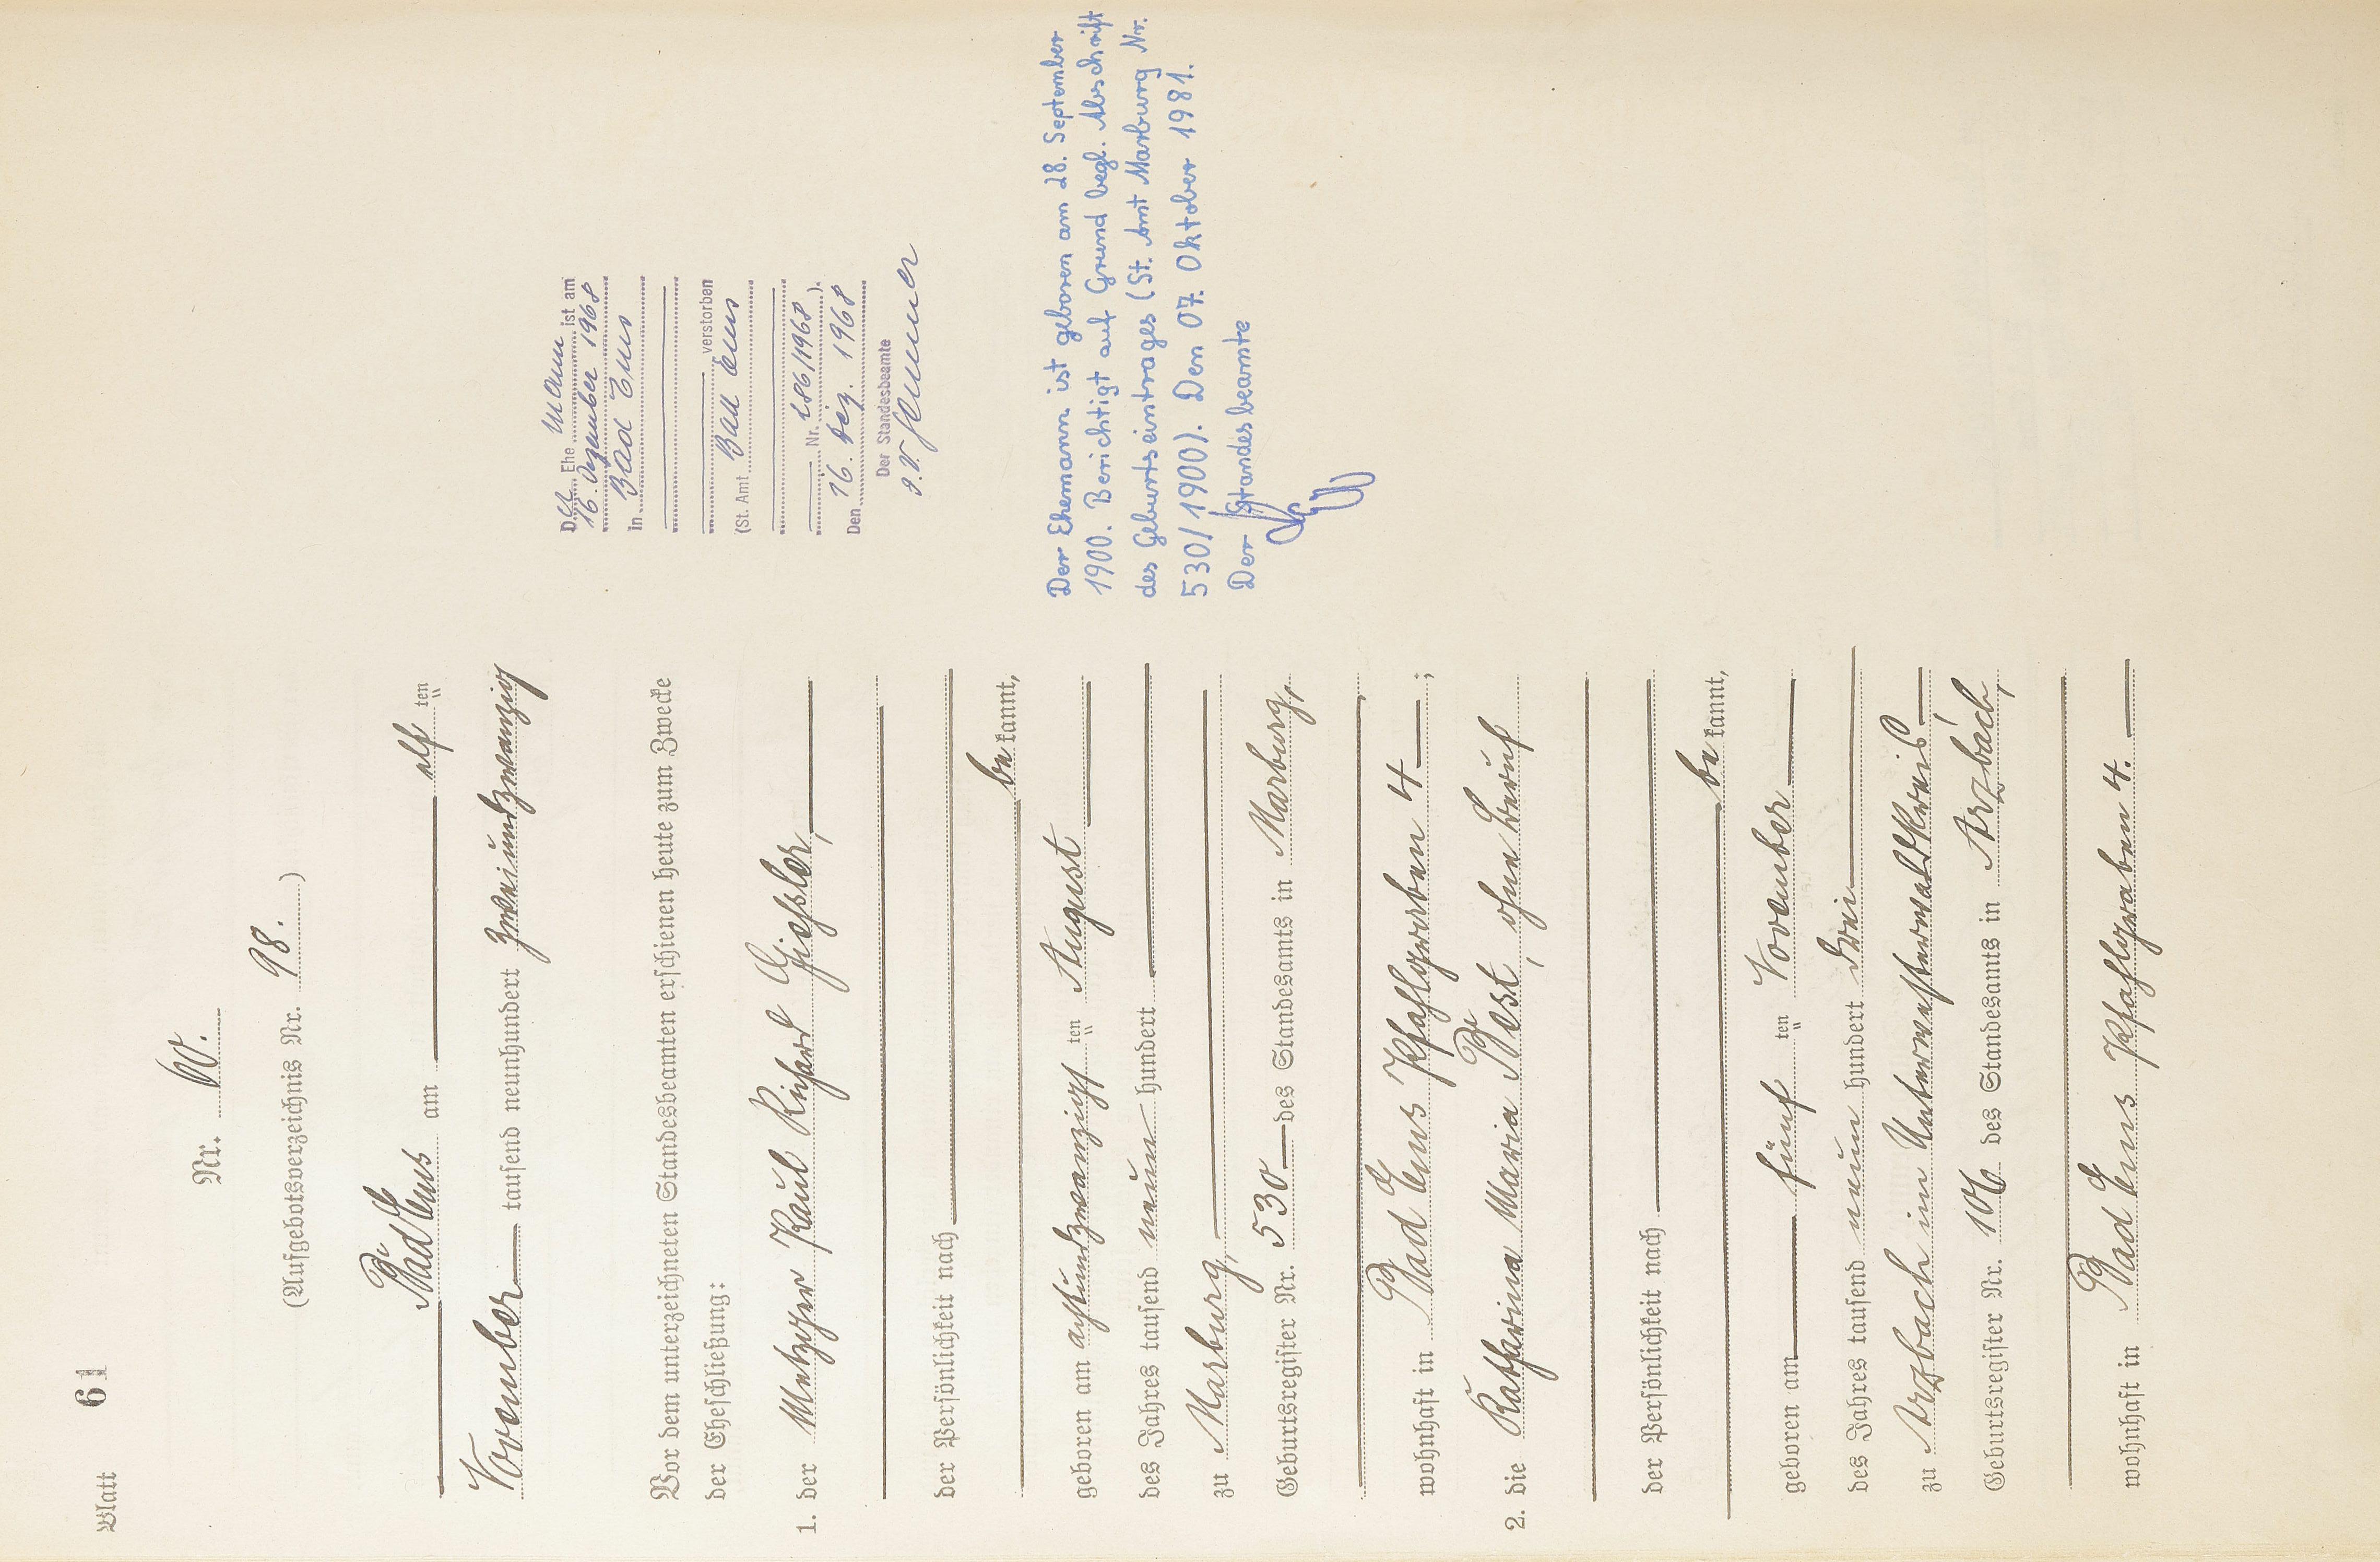 Blatt 61
Nr. 60.
(Aufgebotsverzeichnis Nr. 98. )
Bad Ems am elf ten
November tausend neunhundert zweiundzwanzig
Vor dem unterzeichneten Standesbeamten erschienen heute zum Zwecke
der Eheschließung:
1. der Metzger Paul Richard Giessler,
der Persönlichkeit nach
be kannt,
geboren am achtundzwanzigst ten August
des Jahres tausend neun hundert
zu Marburg,
Geburtsregister Nr. 530 des Standesamts in Marburg,
wohnhaft in Bad Ems Pfahlgraben 4 ;
2. die Katharina Maria Best, ohne Beruf
der Persönlichkeit nach
be kannt,
geboren am fünf ten November
des Jahres tausend neun hundert drei
zu Arzbach im Unterwesterwaldkreis
Geburtsregister Nr. 106 des Standesamts in Arzbach,
wohnhaft in Bad Ems Pfahlgraben 4.
Der Ehe mann ist am
16. Dezember 1968
in Bad Ems
verstorben
(St. Amt Bad Ems
Nr. 286/1968 ).
Den 16. Dez. 1968
Der Standesbeamte
J.V.
Der Ehemann ist geboren am 28. September
1900. Berichtigt auf Grund begl. Abschrift
des Geburtseintrages (St. Amt Marburg Nr.
530/1900). Den 07. Oktober 1981.
Der Standesbeamte